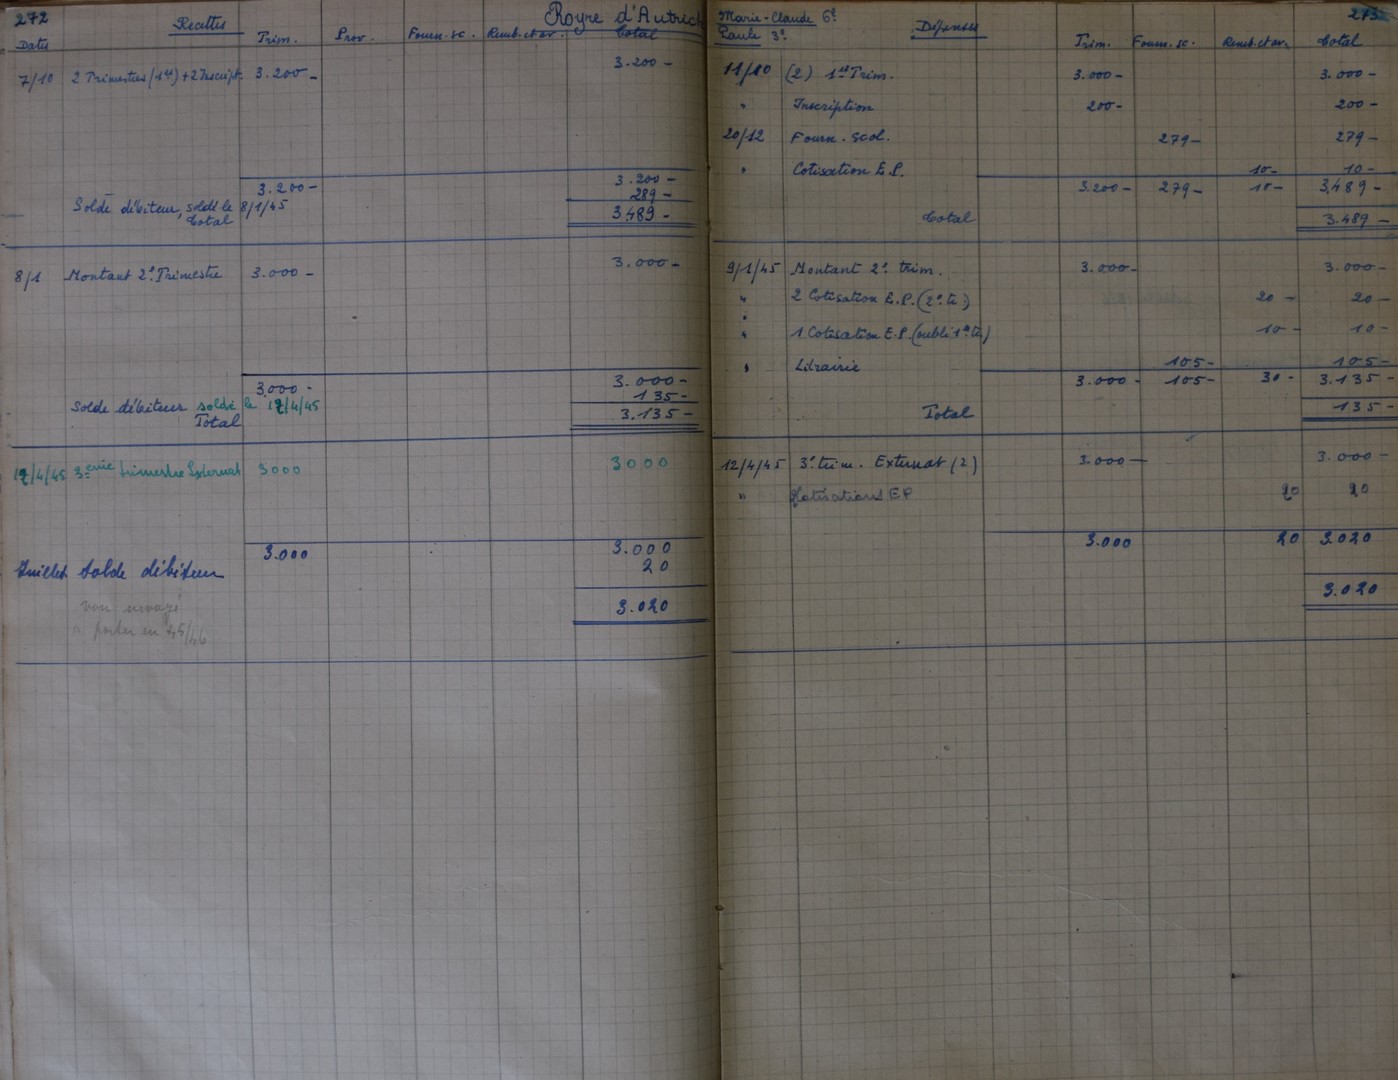 272
Recettes
Royre d'Autrech
Dates Trim. Prov. Fourn. sc. Remb. et av. Total
7/10 2 Trimestres (1er) + 2 Inscript. 3.200- 3.200-
3.200- 3.200-
Solde débiteur, soldé le 8/1/45 289-
Total 3.489-
8/1 Montant 2e Trimestre 3.000- 3.000-
3.000- 3.000-
Solde débiteur soldé le 12/4/45 135-
Total 3.135-
12/4/45 3ème trimestre Externat 3000 3000
3.000 3.000
Juillet Solde débiteur 20
3.020
porter en 45/46
Marie-Claude 6e
Paule 3e
Dépenses
273
Trim. Fourn. sc. Remb. et av. Total
11/10 (2) 1er Trim. 3.000- 3.000-
" Inscription 200- 200-
20/12 Fourn. scol. 279- 279-
" Cotisation E.P. 10- 10-
3.200- 279- 10- 3.489-
Total 3.489-
9/1/45 Montant 2e trim. 3.000- 3.000-
" 2 Cotisation E.P. (2e tr.) 20- 20-
" 1 Cotisation E.P. (oubli 1er tr.) 10- 10-
" Librairie 105- 105-
3.000- 105- 30- 3.135-
Total 135-
12/4/45 3e trim. Externat (2) 3.000- 3.000-
" Cotisations EP 20 20
3.000 20 3.020
3.020